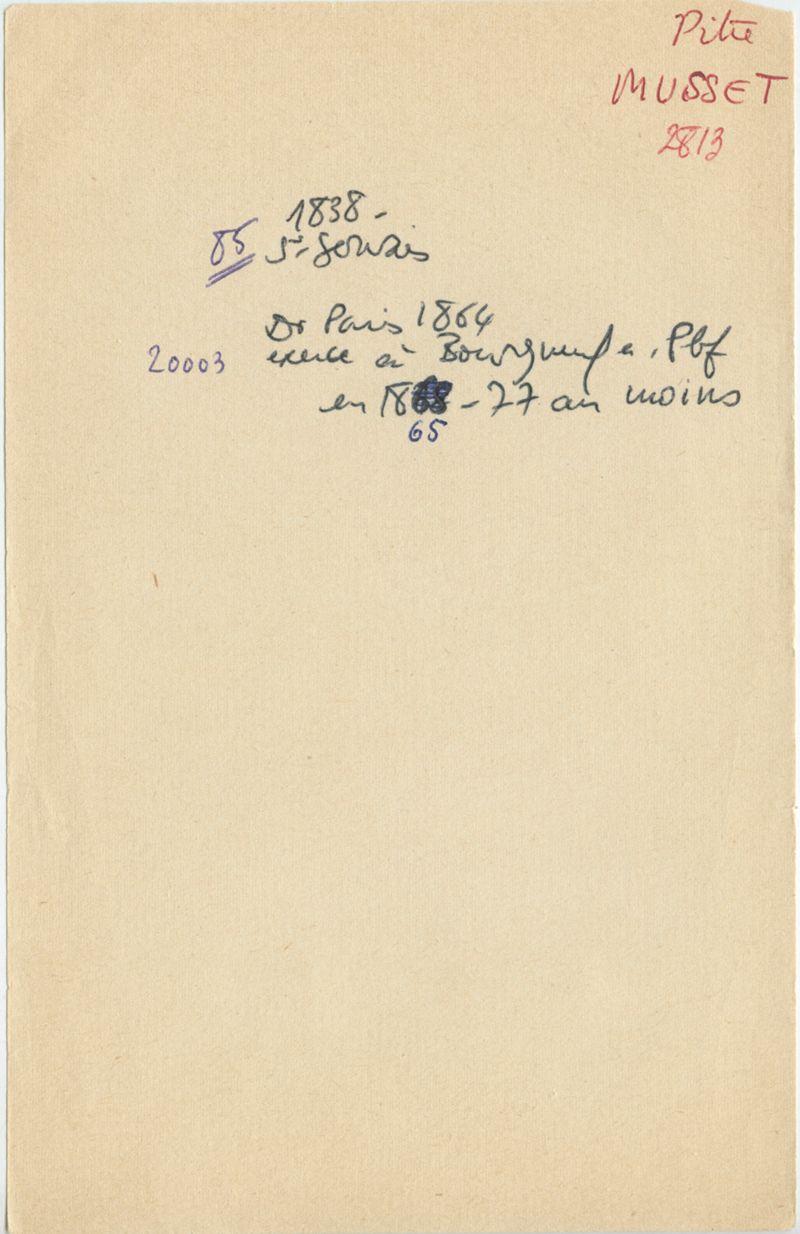 Pitre
MUSSET
2813
1838 -
85 St-Gervais
Dr Paris 1864
20003 exerce à Bourgneuf
en 18 - 77 au moins
65